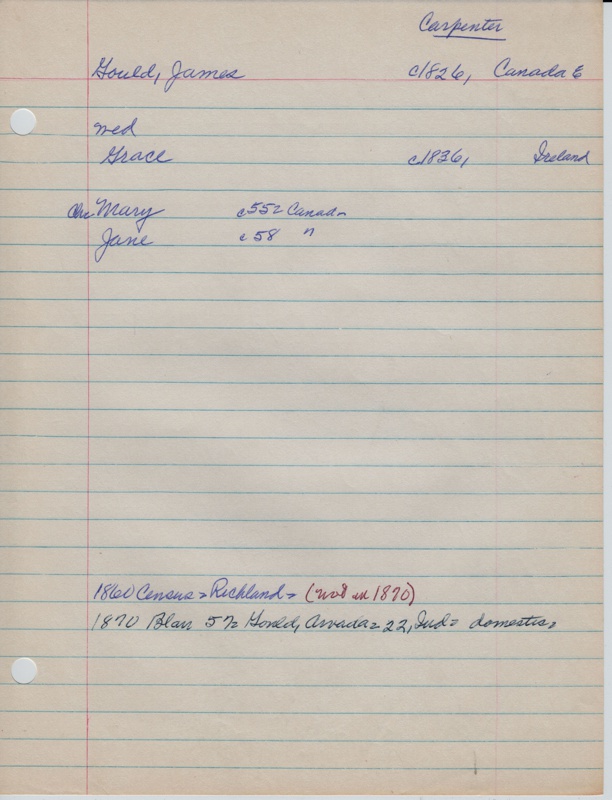 Carpenter
Gould, James c1826, Canada E
wed
Grace c1836, Ireland
Chr Mary c55= Canada
Jane c58 "
1860 Census = Richland = (not in 1870)
1870 Blair 57= Gould, Arvada = 22, Ind = domestic =